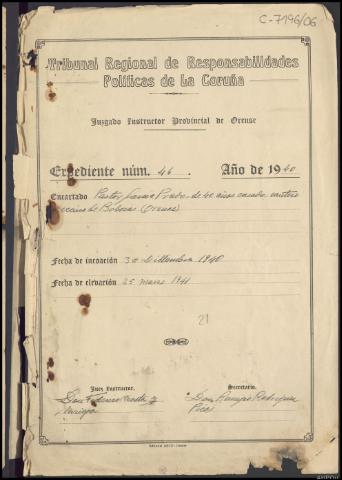 C-7196/06
Tribunal Regional de Responsabilidades
Políticas de La Coruña
Juzgado Instructor Provincial de Orense
Expediente núm. 46. Año de 1940
Encartado Pastor Prado de 40 años casado, cantero
vecino de Boborás (Orense)
Fecha de incoación 30 Diciembre 1940
Fecha de elevación 25 marzo 1941
21
Juez Instructor,
Secretario,
Don Federico
Don Ramiro Rodriguez
AHPOU